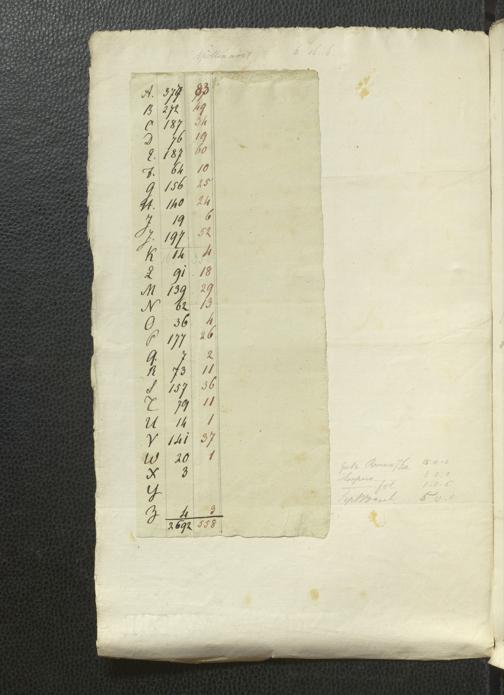 A. 379 83
B 272 49
C 187 34
D 76 19
E. 187 60
F. 64 10
G 156 25
H. 140 24
I 19 6
J. 197 52
K 14 4
L 91 18
M 139 29
N 62 13
O 36 4
P 177 26
Q. 7 2
R 73 11
S 157 36
T 79 11
U 14 1
V 141 37
W 20 1
X 3
Y
Z 4 3
2692 558